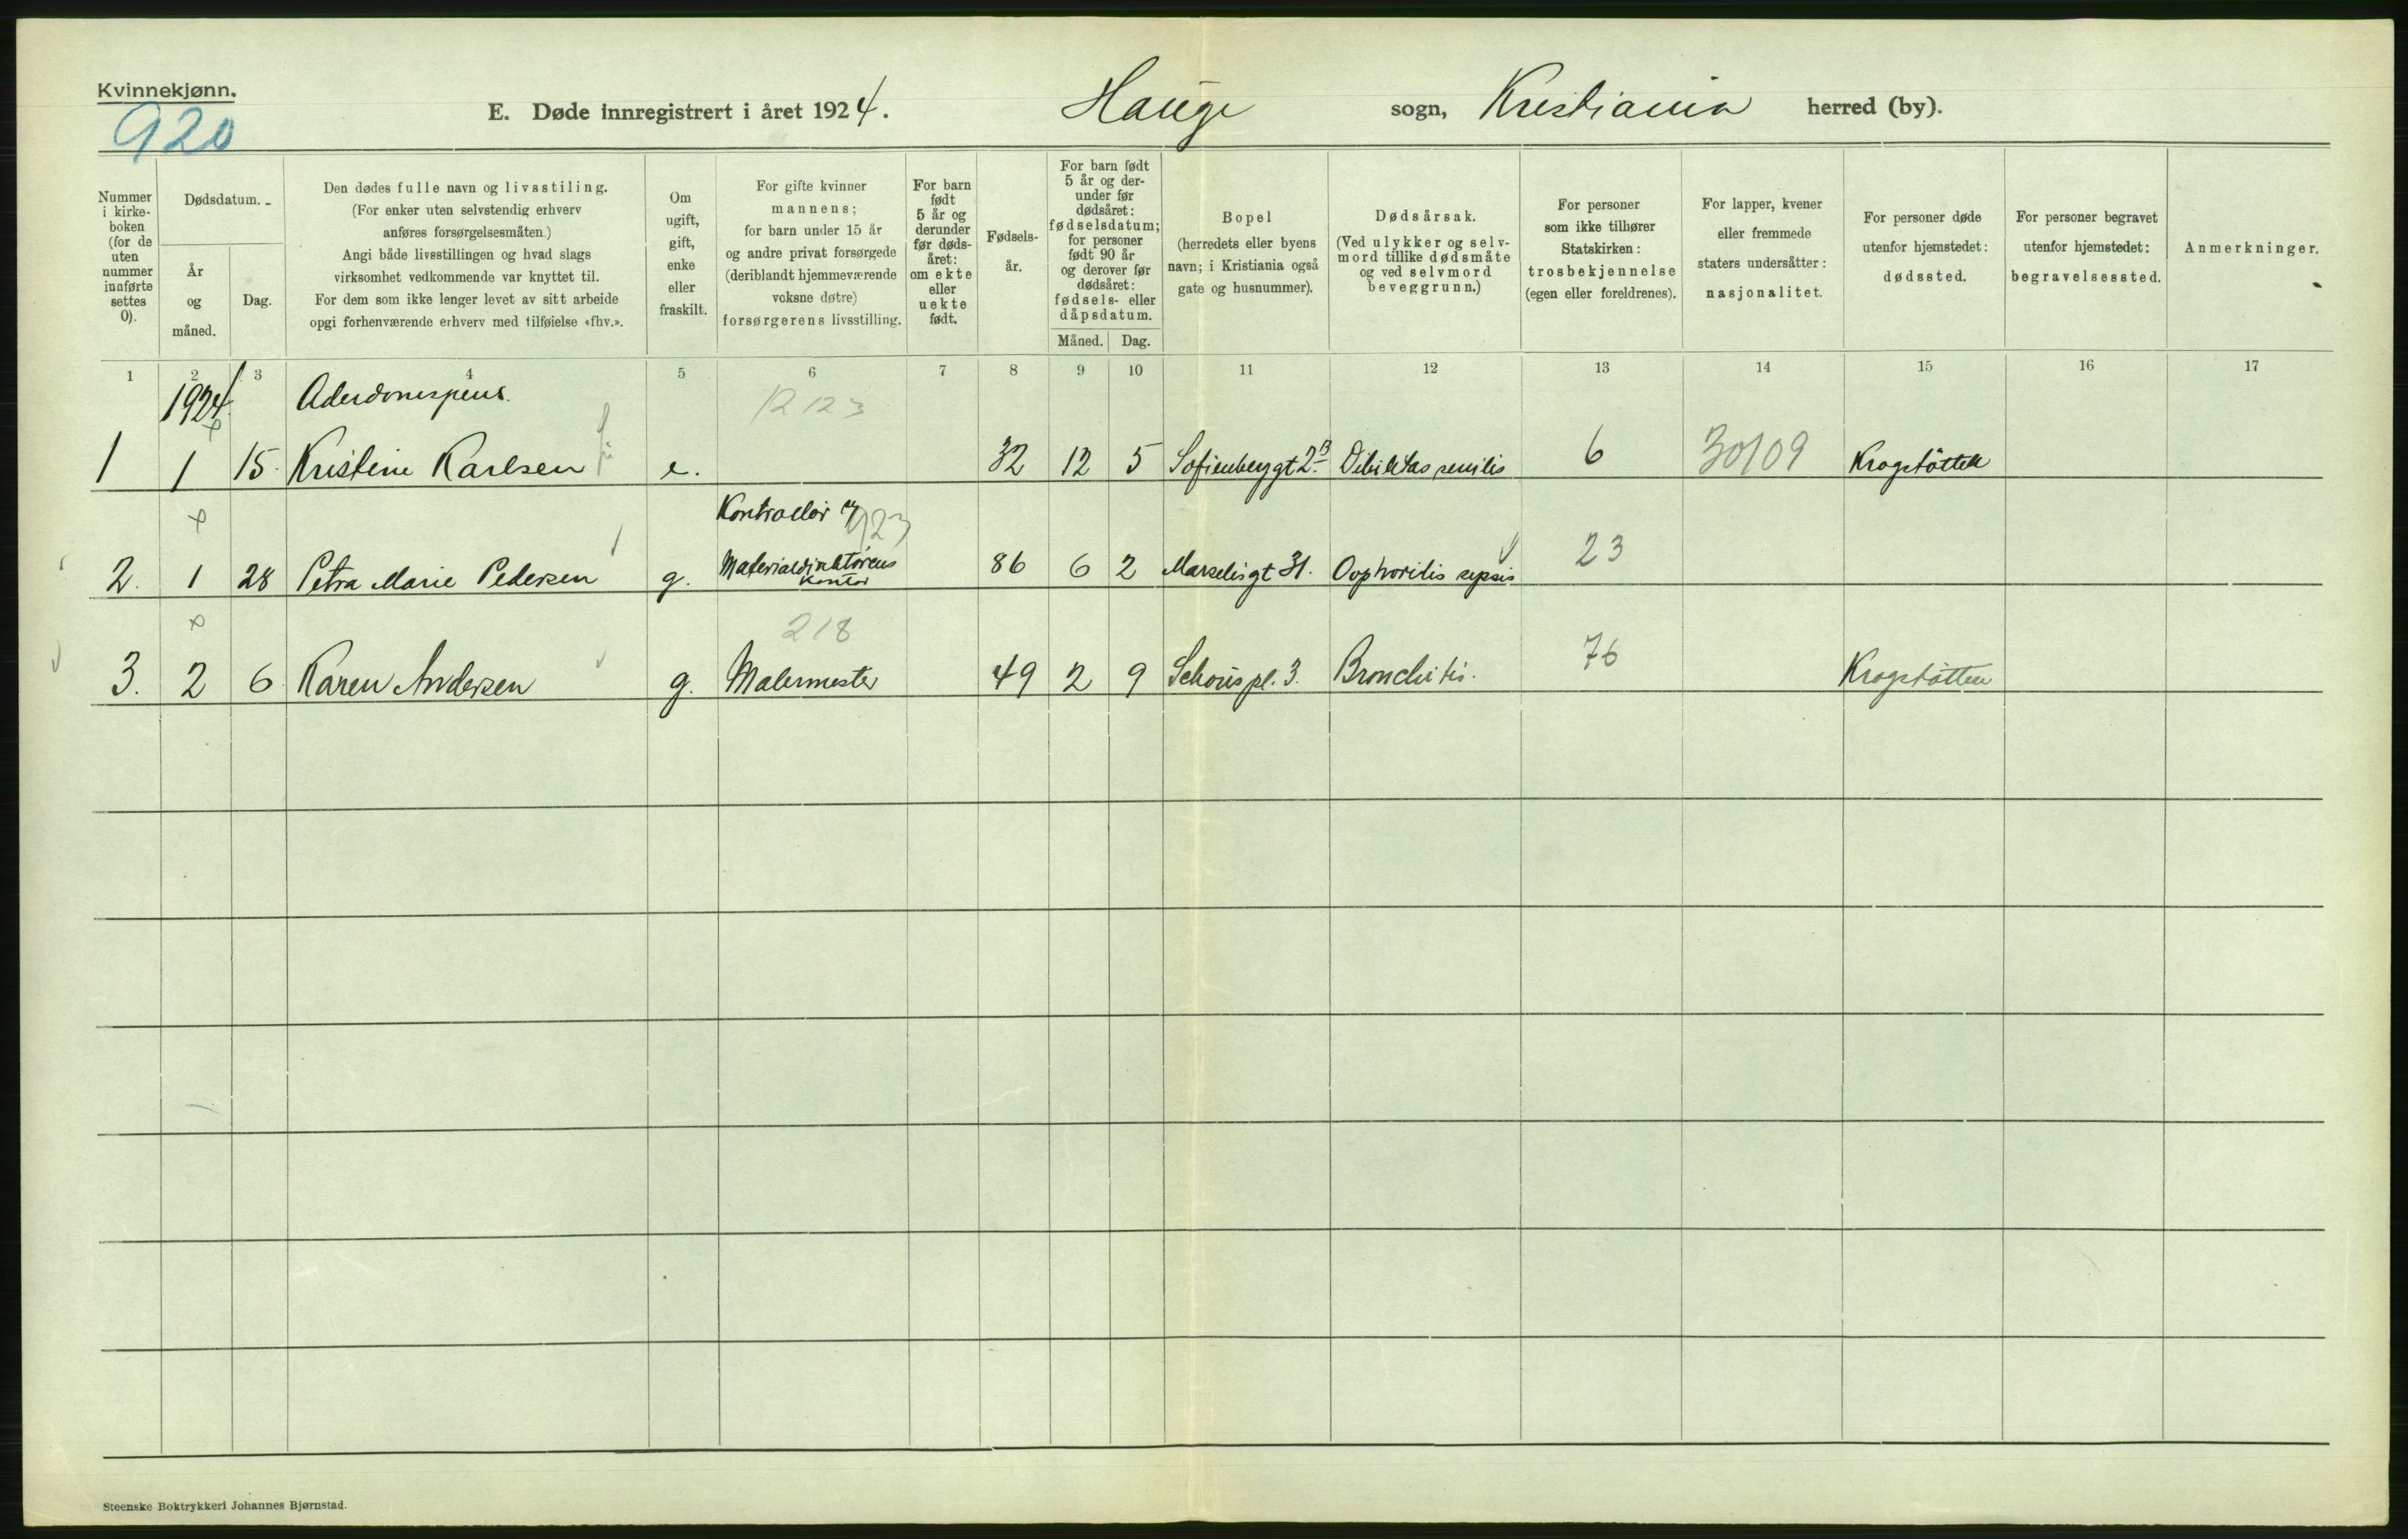 Kvinnekjønn.
920
E. Døde innregistrert i året 1924. Hauge sogn, Kristiania herred (by).
Nummer
i kirke-
boken
(for de
uten
nummer
innførte
settes
0).
Dødsdatum.
År
og
måned.
Dag.
Den dødes fulle navn og livsstiling.
(For enker uten selvstendig erhverv
anføres forsørgelsesmåten.)
Angi både livsstillingen og hvad slags
virksomhet vedkommende var knyttet til.
For dem som ikke lenger levet av sitt arbeide
opgi forhenværende erhverv med tilføielse «fhv.».
Om
ugift,
gift,
enke
eller
fraskilt.
For gifte kvinner
mannens;
for barn under 15 år
og andre privat forsørgede
(deriblandt hjemmeværende
voksne døtre)
forsørgerens livsstilling.
For barn
født
5 år og
derunder
før døds-
året:
om ekte
eller
uekte
født.
Fødsels-
år.
For barn født
5 år og der-
under før
dødsåret:
fødselsdatum;
for personer
født 90 år
og derover før
dødsåret:
fødsels- eller
dåpsdatum.
Måned. Dag.
Bopel
(herredets eller byens
navn; i Kristiania også
gate og husnummer).
Dødsårsak.
(Ved ulykker og selv-
mord tillike dødsmåte
og ved selvmord
beveggrunn.)
For personer
som ikke tilhører
Statskirken:
trosbekjennelse
(egen eller foreldrenes).
For lapper, kvener
eller fremmede
staters undersåtter:
nasjonalitet.
For personer døde
utenfor hjemstedet:
dødssted.
For personer begravet
utenfor hjemstedet:
begravelsessted.
Anmerkninger.
1 2 3 4 5 6 7 8 9 10 11 12 13 14 15 16 17
1924. 12123
1 1 15. Kristine Karlsen e. 32 12 5 Sofienberggt 2B Debilitas senilis 6 30109 Krogstötten
Kontrollör
923
2. 1 28 Petra Marie Pedersen g. Materialdirektörens 86 6 2 Marselisgt 31. Oophoritis sepsis 23
kontor
218
3. 2 6 Karen Andersen g. Malermester 49 2 9 Schous pl. 3. Bronchitis. 76 Krogstötten
Steenske Boktrykkeri Johannes Bjørnstad.